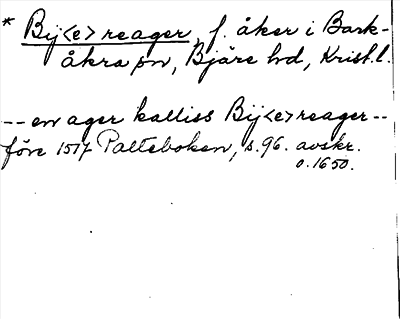 * Bij<e>reager, f. åker i Bark-
åkra sn, Bjäre hd, Krist.l.
-- en ager kalliss Bij<e>reager --
före 1517 Palteboken, s.96. avskr.
o.1650.